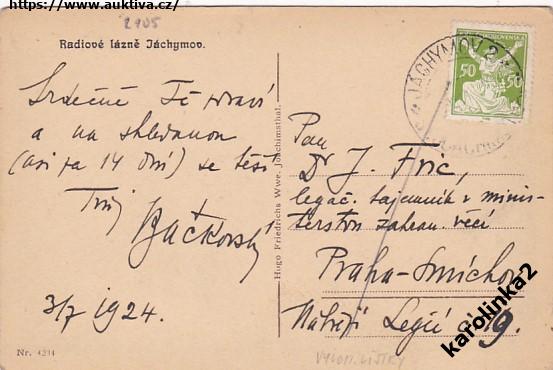 https://www.auktiva.cz/
2905
Radiové lázně Jáchymov.
Srdečně Tě zdraví
a na shledanou
(asi za 14 dní) se těší
Tvůj
Bačkovský
3/7 1924.
Nr. 4234
Hugo Friedrichs Wwe, Joachimsthal.
JÁCHYMOV 2
50 50
Pan
Dr J. Fric,
legač. tajemník v minis-
terstvu zahran. věcí
Praha-Smíchov
Nábřeží Legií č. 19.
karolinka2